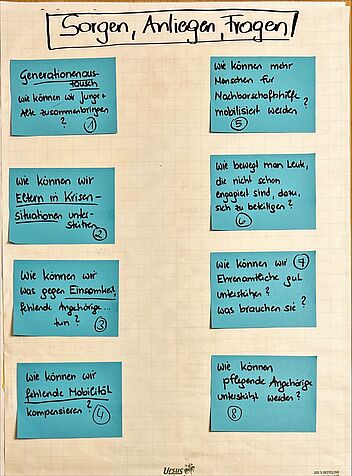 Sorgen, Anliegen, Fragen!
Generationenaus-
tausch
Wie können wir Junge +
Alte zusammenbringen
?
1
Wie können wir
Eltern in Krisen-
situationen unter-
stützen
2
Wie können wir
was gegen Einsamkeit,
fehlende Angehörige...
tun?
3
Wie können wir
fehlende Mobilität
kompensieren?
4
Wie können mehr
Menschen für
Nachbarschaftshilfe
mobilisiert werden?
5
Wie bewegt man Leute,
die nicht schon
engagiert sind, dazu,
sich zu beteiligen?
6
Wie können wir 7
Ehrenamtliche gut
unterstützen?
Was brauchen sie?
Wie können
pflegende Angehörige
unterstützt werden?
8
URSUS